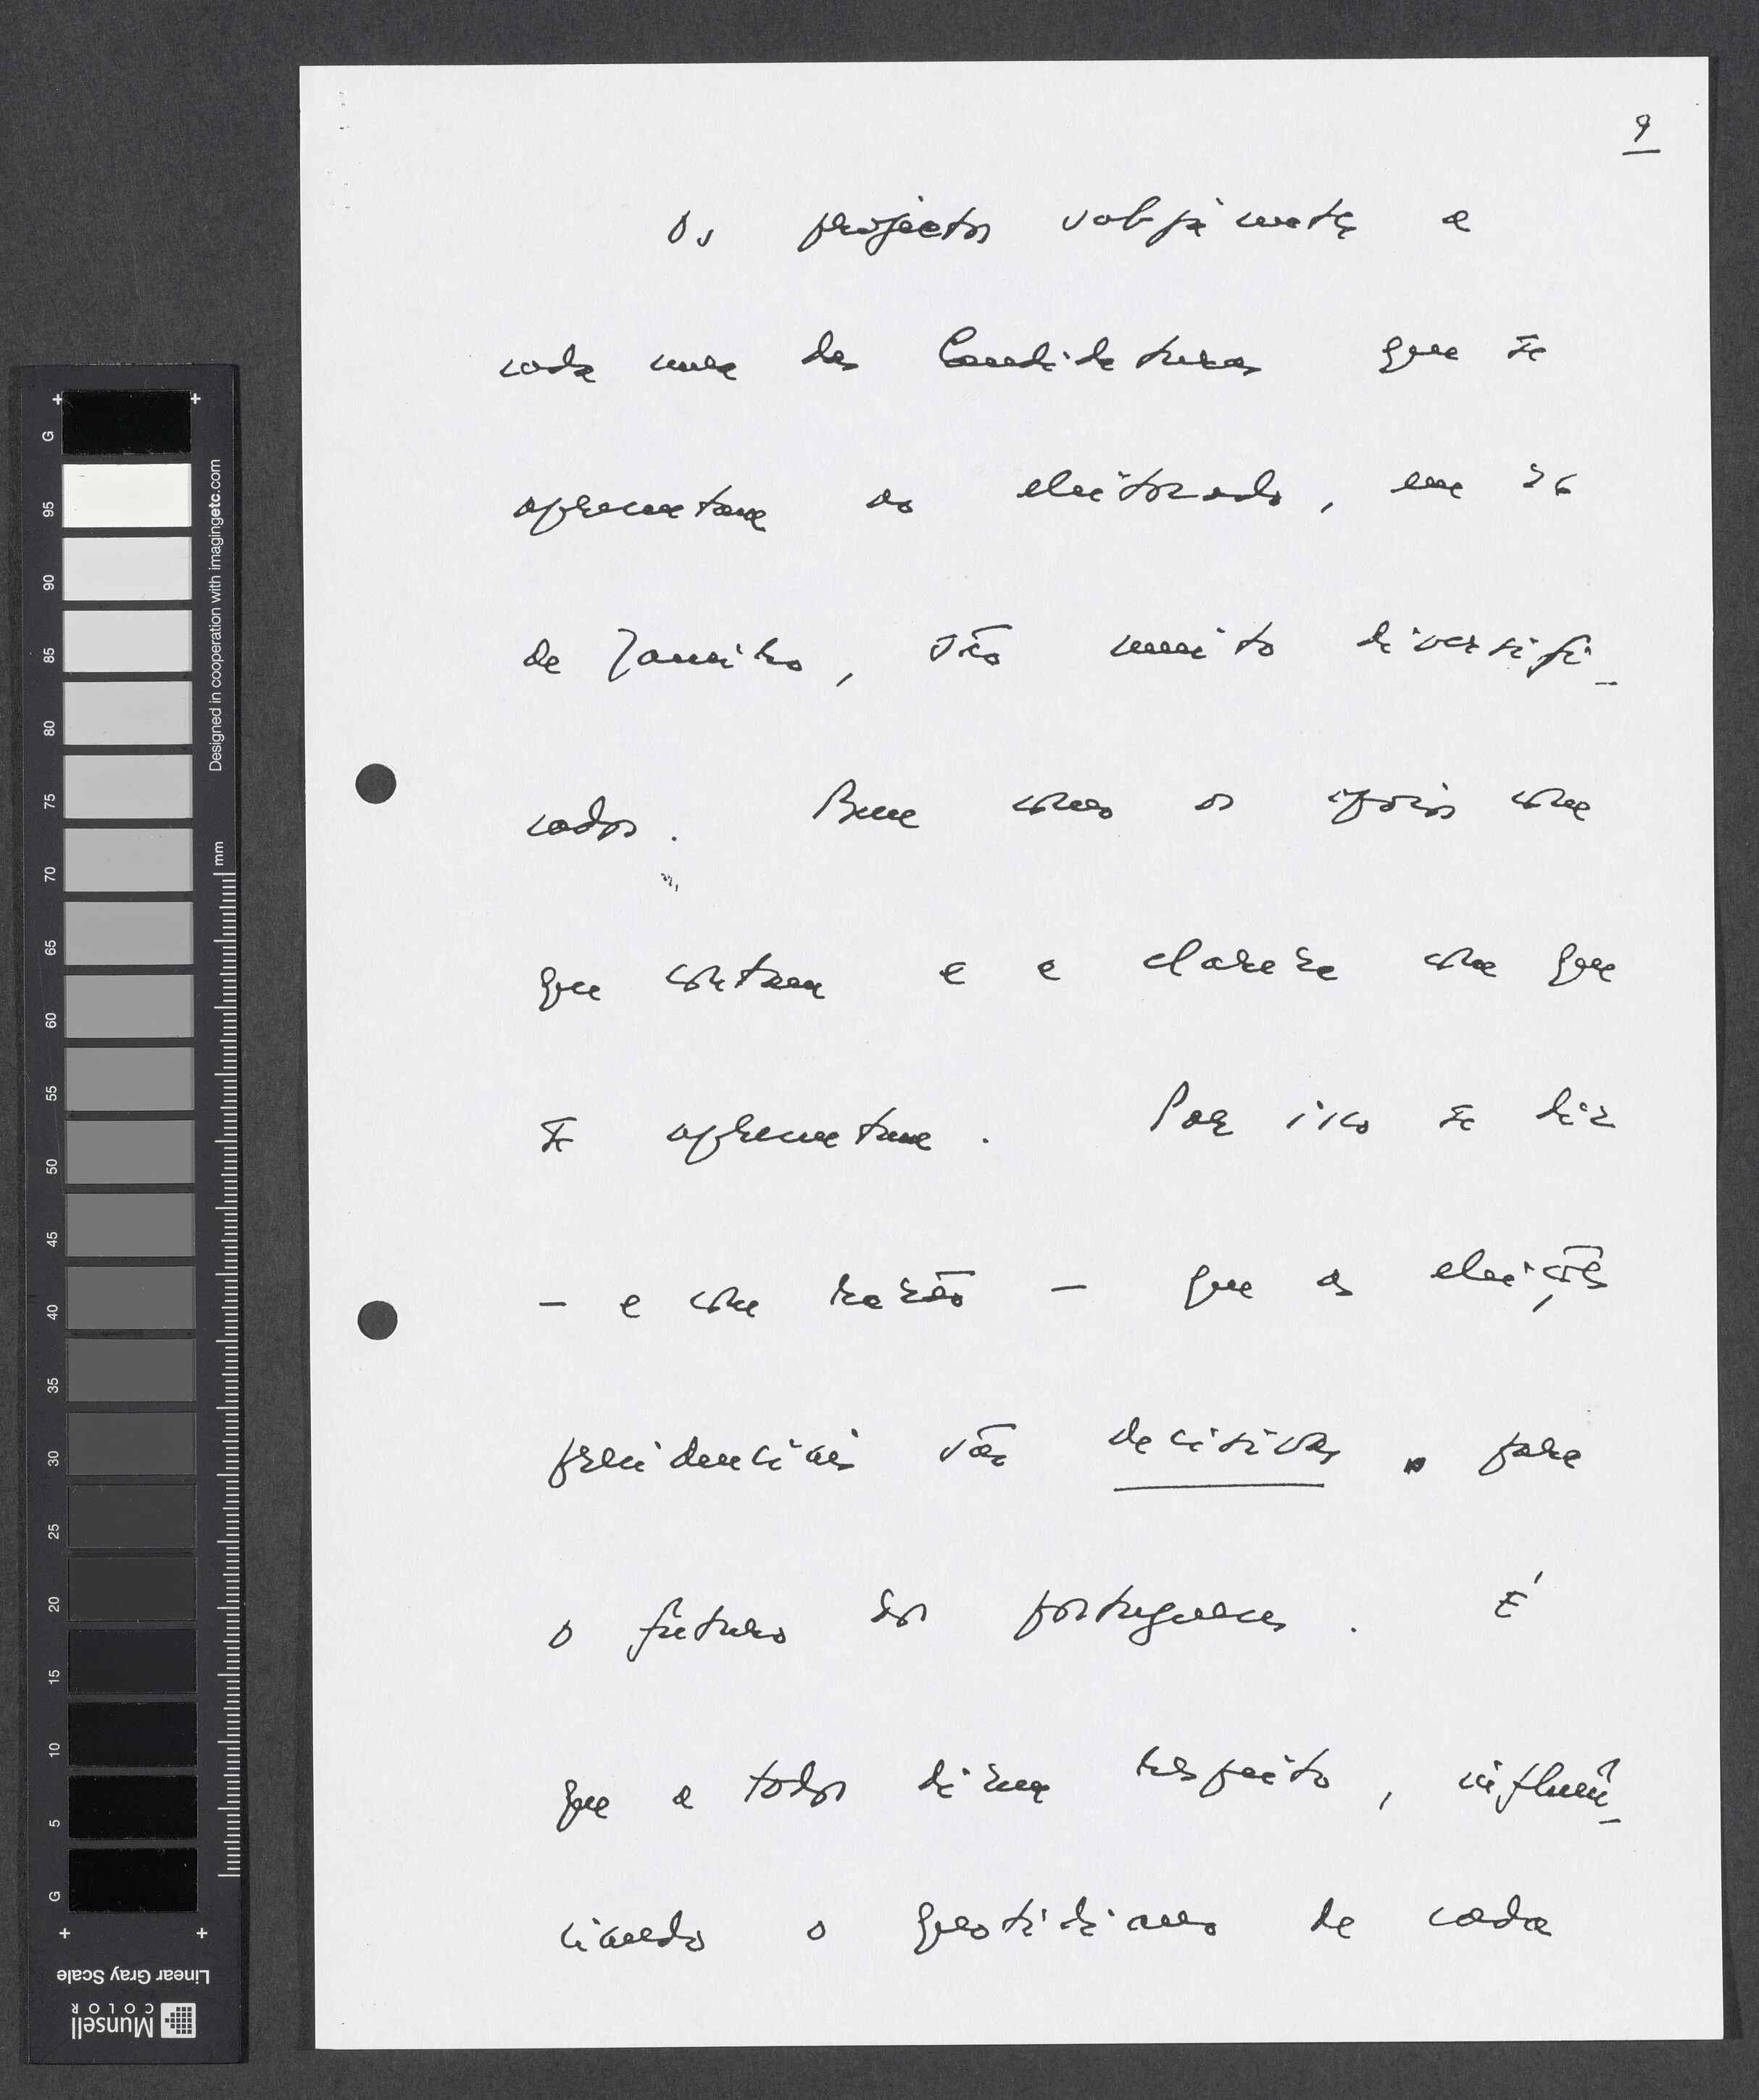 9
Os projectos subjacentes a
cada uma das Candidaturas que se
apresentam ao eleitorado, em 26
de Janeiro, são muito diversifi-
cados. Bem como os apoios com
que contam e a clareza com que
se apresentam. Por isso se diz
- e com razão - que as eleições
presidenciais são decisivas para
o futuro dos portugueses. É
que a todos dizem respeito, influen-
ciando o quotidiano de cada
G
95
90
85
80
75
70
65
60
55
50
45
40
35
30
25
20
15
10
5
G
mm
Designed in cooperation with imagingetc.com
Linear Gray Scale
Munsell
COLOR